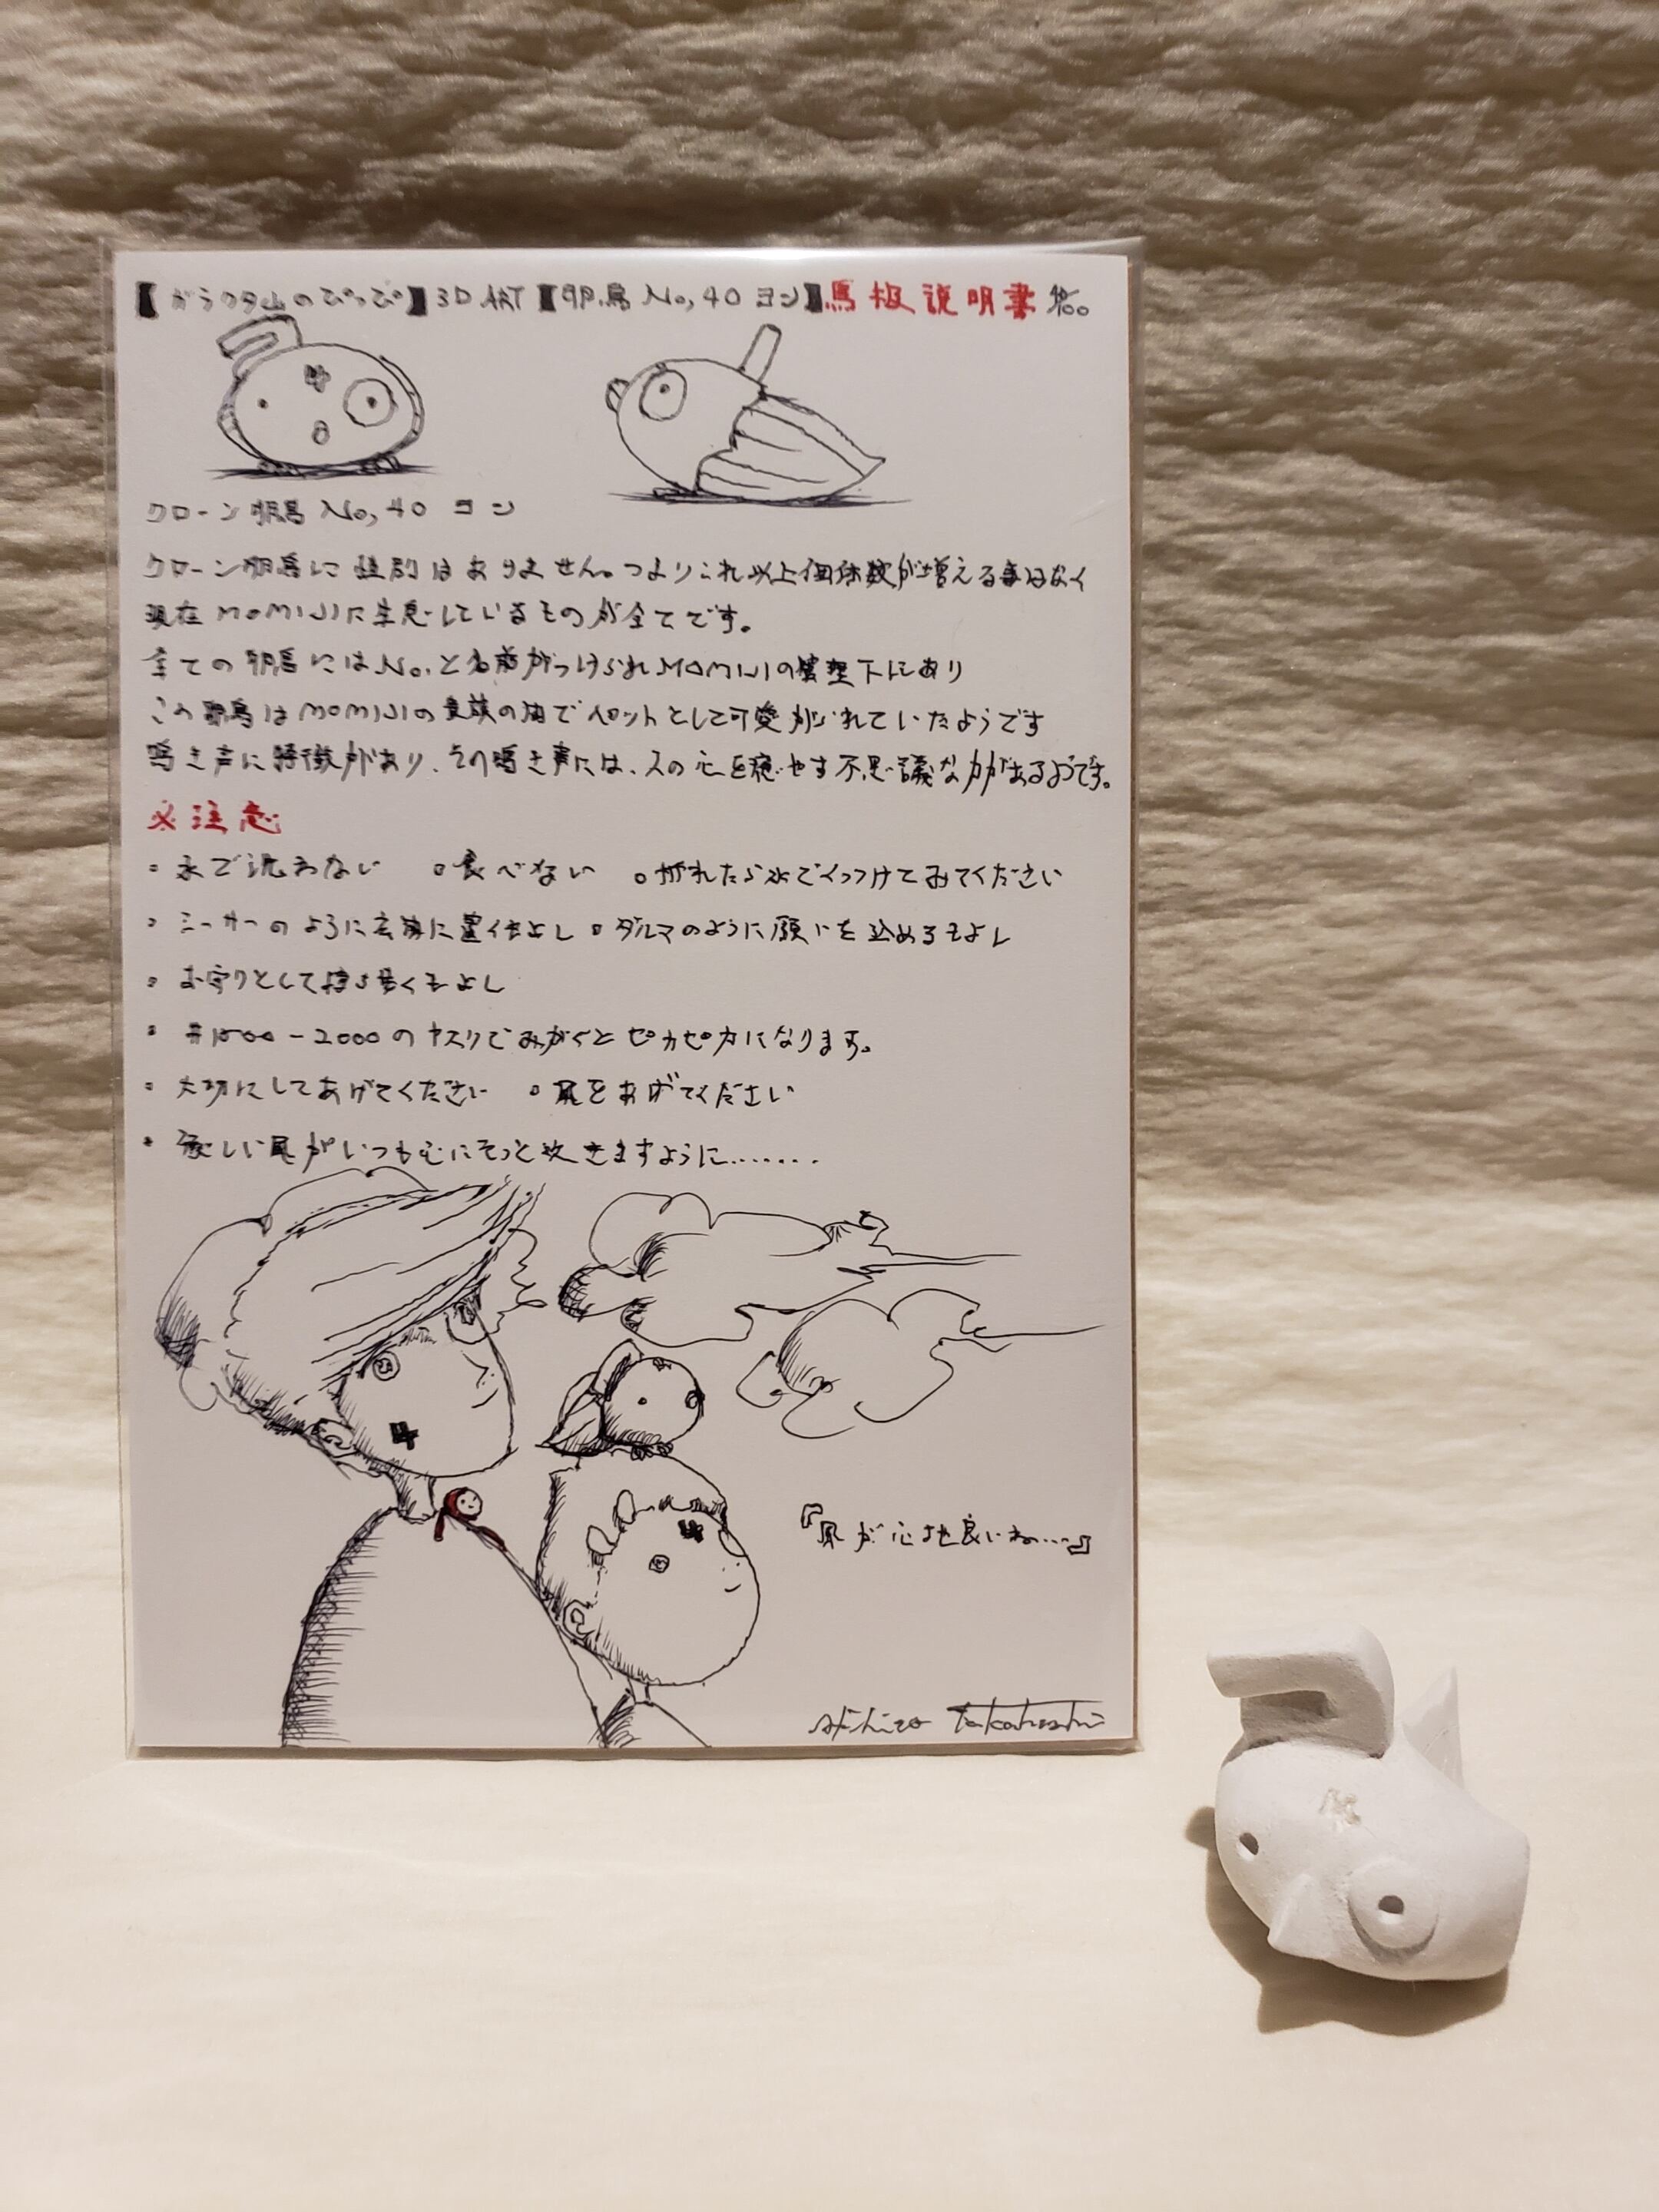 【ガラクタ山のぴっぴ】3D ART【卵鳥 No,40 ヨン】鳥扱説明書
4
クローン卵鳥 No,40 ヨン
クローン卵鳥に性別はありません。つまりこれ以上個体数が増える事はなく
現在MOMIJIに生息しているものが全てです。
全ての卵鳥にはNo.と名前がつけられMOMIJIの管理下にあり
この卵鳥はMOMIJIの貴族の間でペットとして可愛がられていたようです
鳴き声に特徴があり、その鳴き声には、人の心を癒やす不思議な力があるようです。
※注意
・水で洗わない ・食べない ・がれたら水でくっつけてみてください
・シーサーのように玄関に置くもよし ・ダルマのように願いを込めるもよし
・お守りとして持ち歩くもよし
・#1500-2000のヤスリでみがくとピカピカになります。
・大切にしてあげてください ・風をあげてください
・涼しい風がいつも心にそっと吹きますように.......
4
4
『風が心地良いね...』
Akihiro Takahashi